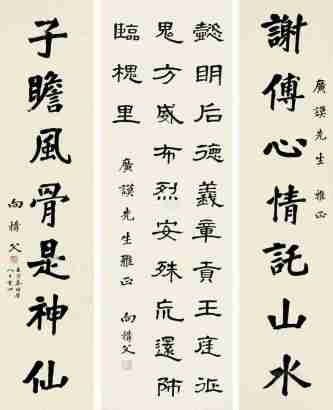 謝傅心情託山水
廣謨先生 雅正
懿明后德義章貢王庭征
鬼方威布烈安殊巟還師
臨槐里
廣謨先生雅正 向構父
子瞻風骨是神仙
向構父